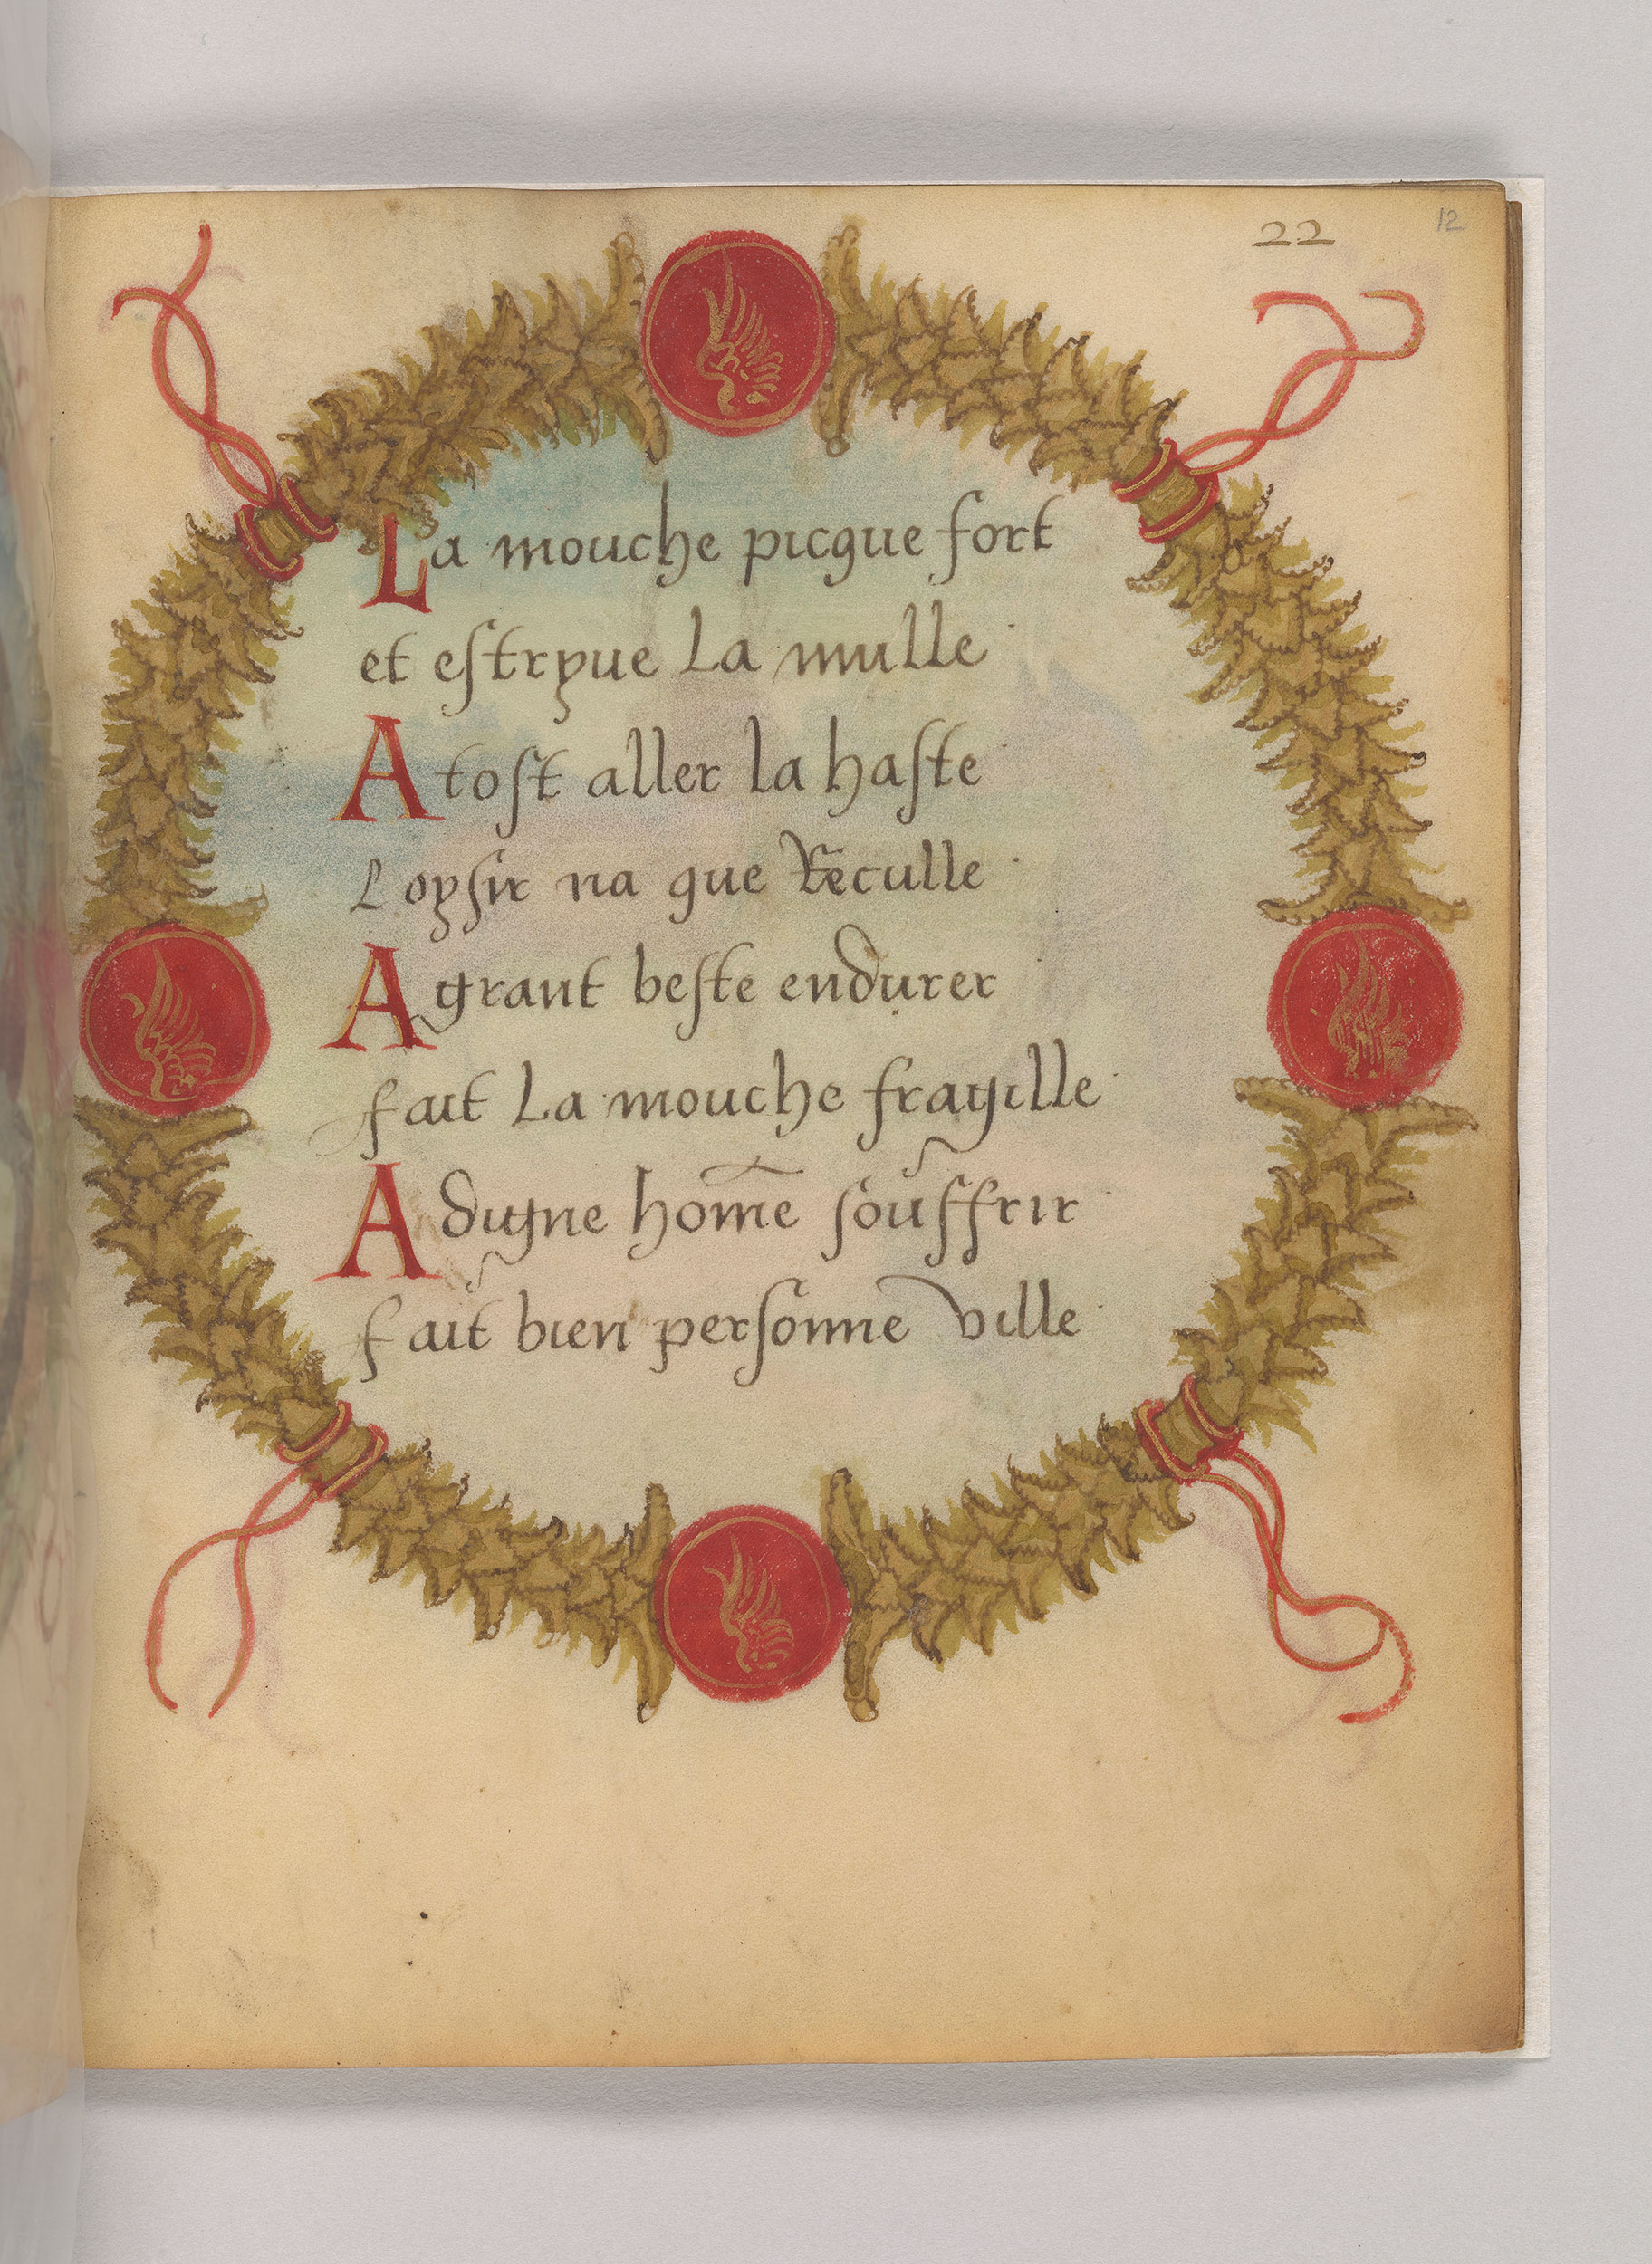 22
12
La mouche picque fort
et estryue La mulle
A tost aller la haste
Loysir na que Reculle
A grant beste endurer
fait La mouche fragille
A digne home͂ souffrir
fait bien personne ville